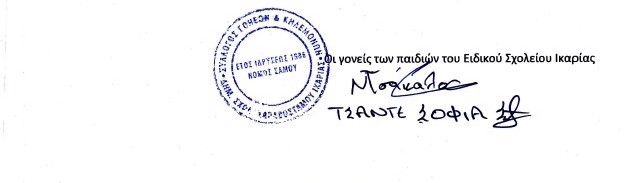 ΣΥΛΛΟΓΟΣ ΓΟΝΕΩΝ & ΚΗΔΕΜΟΝΩΝ
ΔΗΜ. ΣΧΟΛ. ΚΑΡΑΒΟΣΤΑΜΟΥ ΙΚΑΡΙΑΣ
ΕΤΟΣ ΙΔΡΥΣΕΩΣ 1986
ΝΟΜΟΣ ΣΑΜΟΥ
Οι γονείς των παιδιών του Ειδικού Σχολείου Ικαρίας
ΤΣΑΝΤΕ ΣΟΦΙΑ